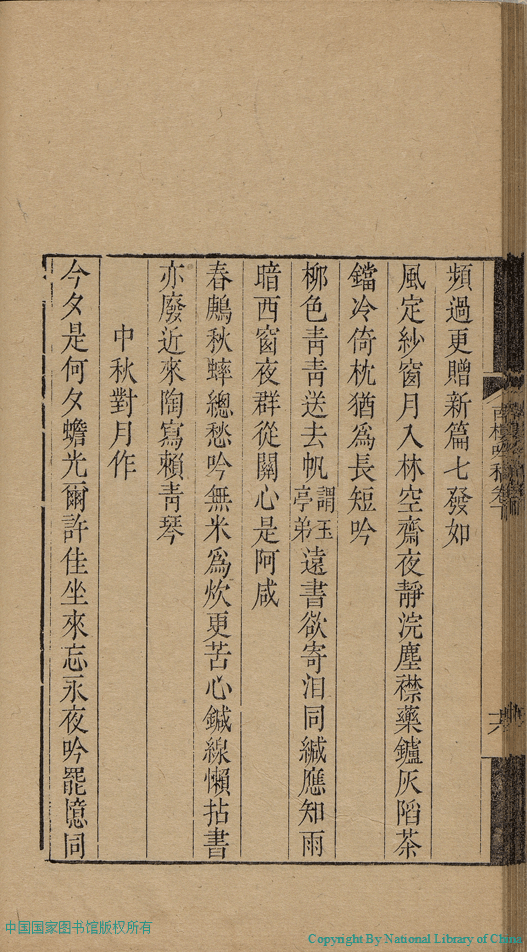 南樓吟稿卷下
頻過更贈新篇七發如
風定紗窗月入林空齋夜靜浣塵襟藥鑪灰陷茶
鐺冷倚枕猶爲長短吟
栁色靑靑送去帆謂玉亭弟遠書欲寄泪同緘應知雨
暗西窗夜群從關心是阿咸
春秋蟀總愁吟無米爲炊更苦心鍼線懶拈書
亦廢近來陶寫賴靑琴
中秋對月作
今夕是何夕蟾光爾許佳坐來忘永夜吟罷憶同
中国国家图书馆版权所有
Copyright By National Library of China